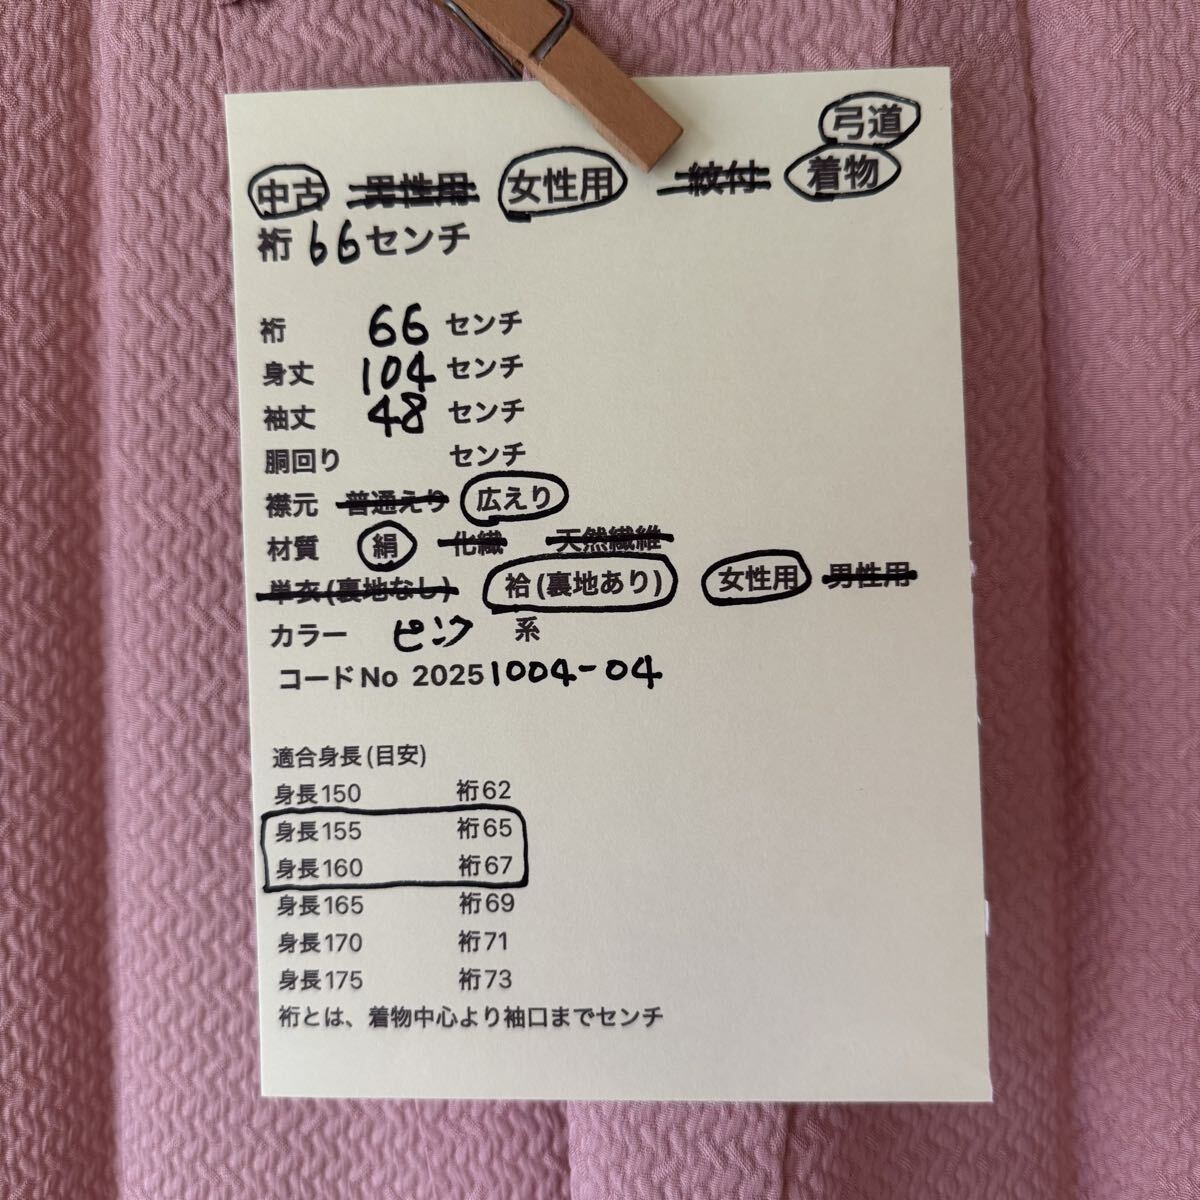 弓道
中古 男性用 女性用 一紋付 着物
裄 66センチ
裄 66 センチ
身丈 104 センチ
袖丈 48 センチ
胴回り センチ
襟元 普通えり 広えり
材質 絹 化繊 天然繊維
単衣(裏地なし) 袷(裏地あり) 女性用 男性用
カラー ピンク 系
コードNo 20251004-04
適合身長(目安)
身長150 裄62
身長155 裄65
身長160 裄67
身長165 裄69
身長170 裄71
身長175 裄73
裄とは、着物中心より袖口までセンチ